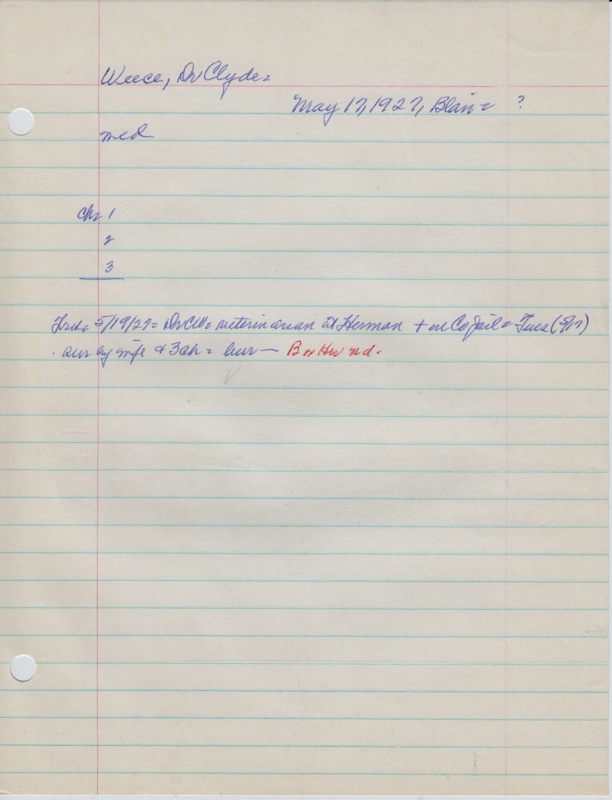 Weece, Dr Clyde=
May 17, 1927, Blair = ?
med
Ch= 1
2
3
5/19/27= Dr CW= veterinarian at Herman + in Co Jail= Tues (5/17)
sur by wife & 3 ch = bur — B or Hw nd.